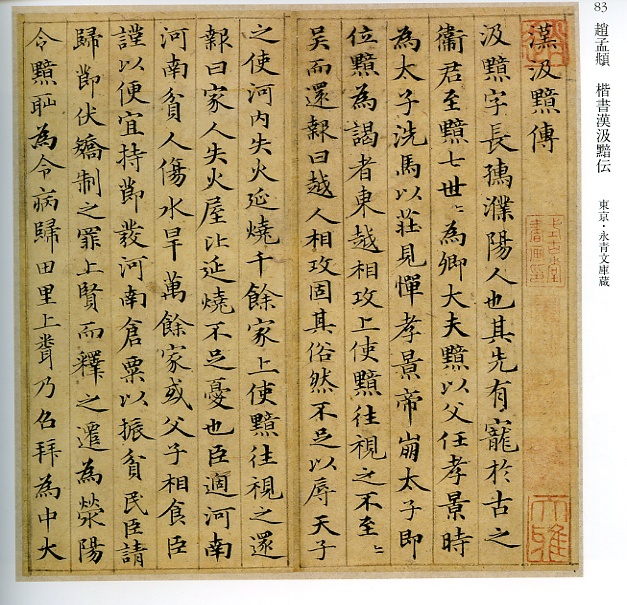 83
趙孟頫 楷書漢汲黯伝 東京・永青文庫蔵
漢汲黯傳
汲黯字長孺濮陽人也其先有寵於古之
衞君至黯七世〻為卿大夫黯以父任孝景時
為太子洗馬以莊見憚孝景帝崩太子即
位黯為謁者東越相攻上使黯往視之不至〻
吴而還報曰越人相攻固其俗然不足以辱天子
之使河内失火延燒千餘家上使黯往視之還
報曰家人失火屋比延燒不足憂也臣適河南
河南貧人傷水旱萬餘家或父子相食臣
謹以便宜持節發河南倉粟以振貧民臣請
歸節伏矯制之罪上賢而釋之遷為滎陽
令黯恥為令病歸田里上聞乃召拜為中大
大雅